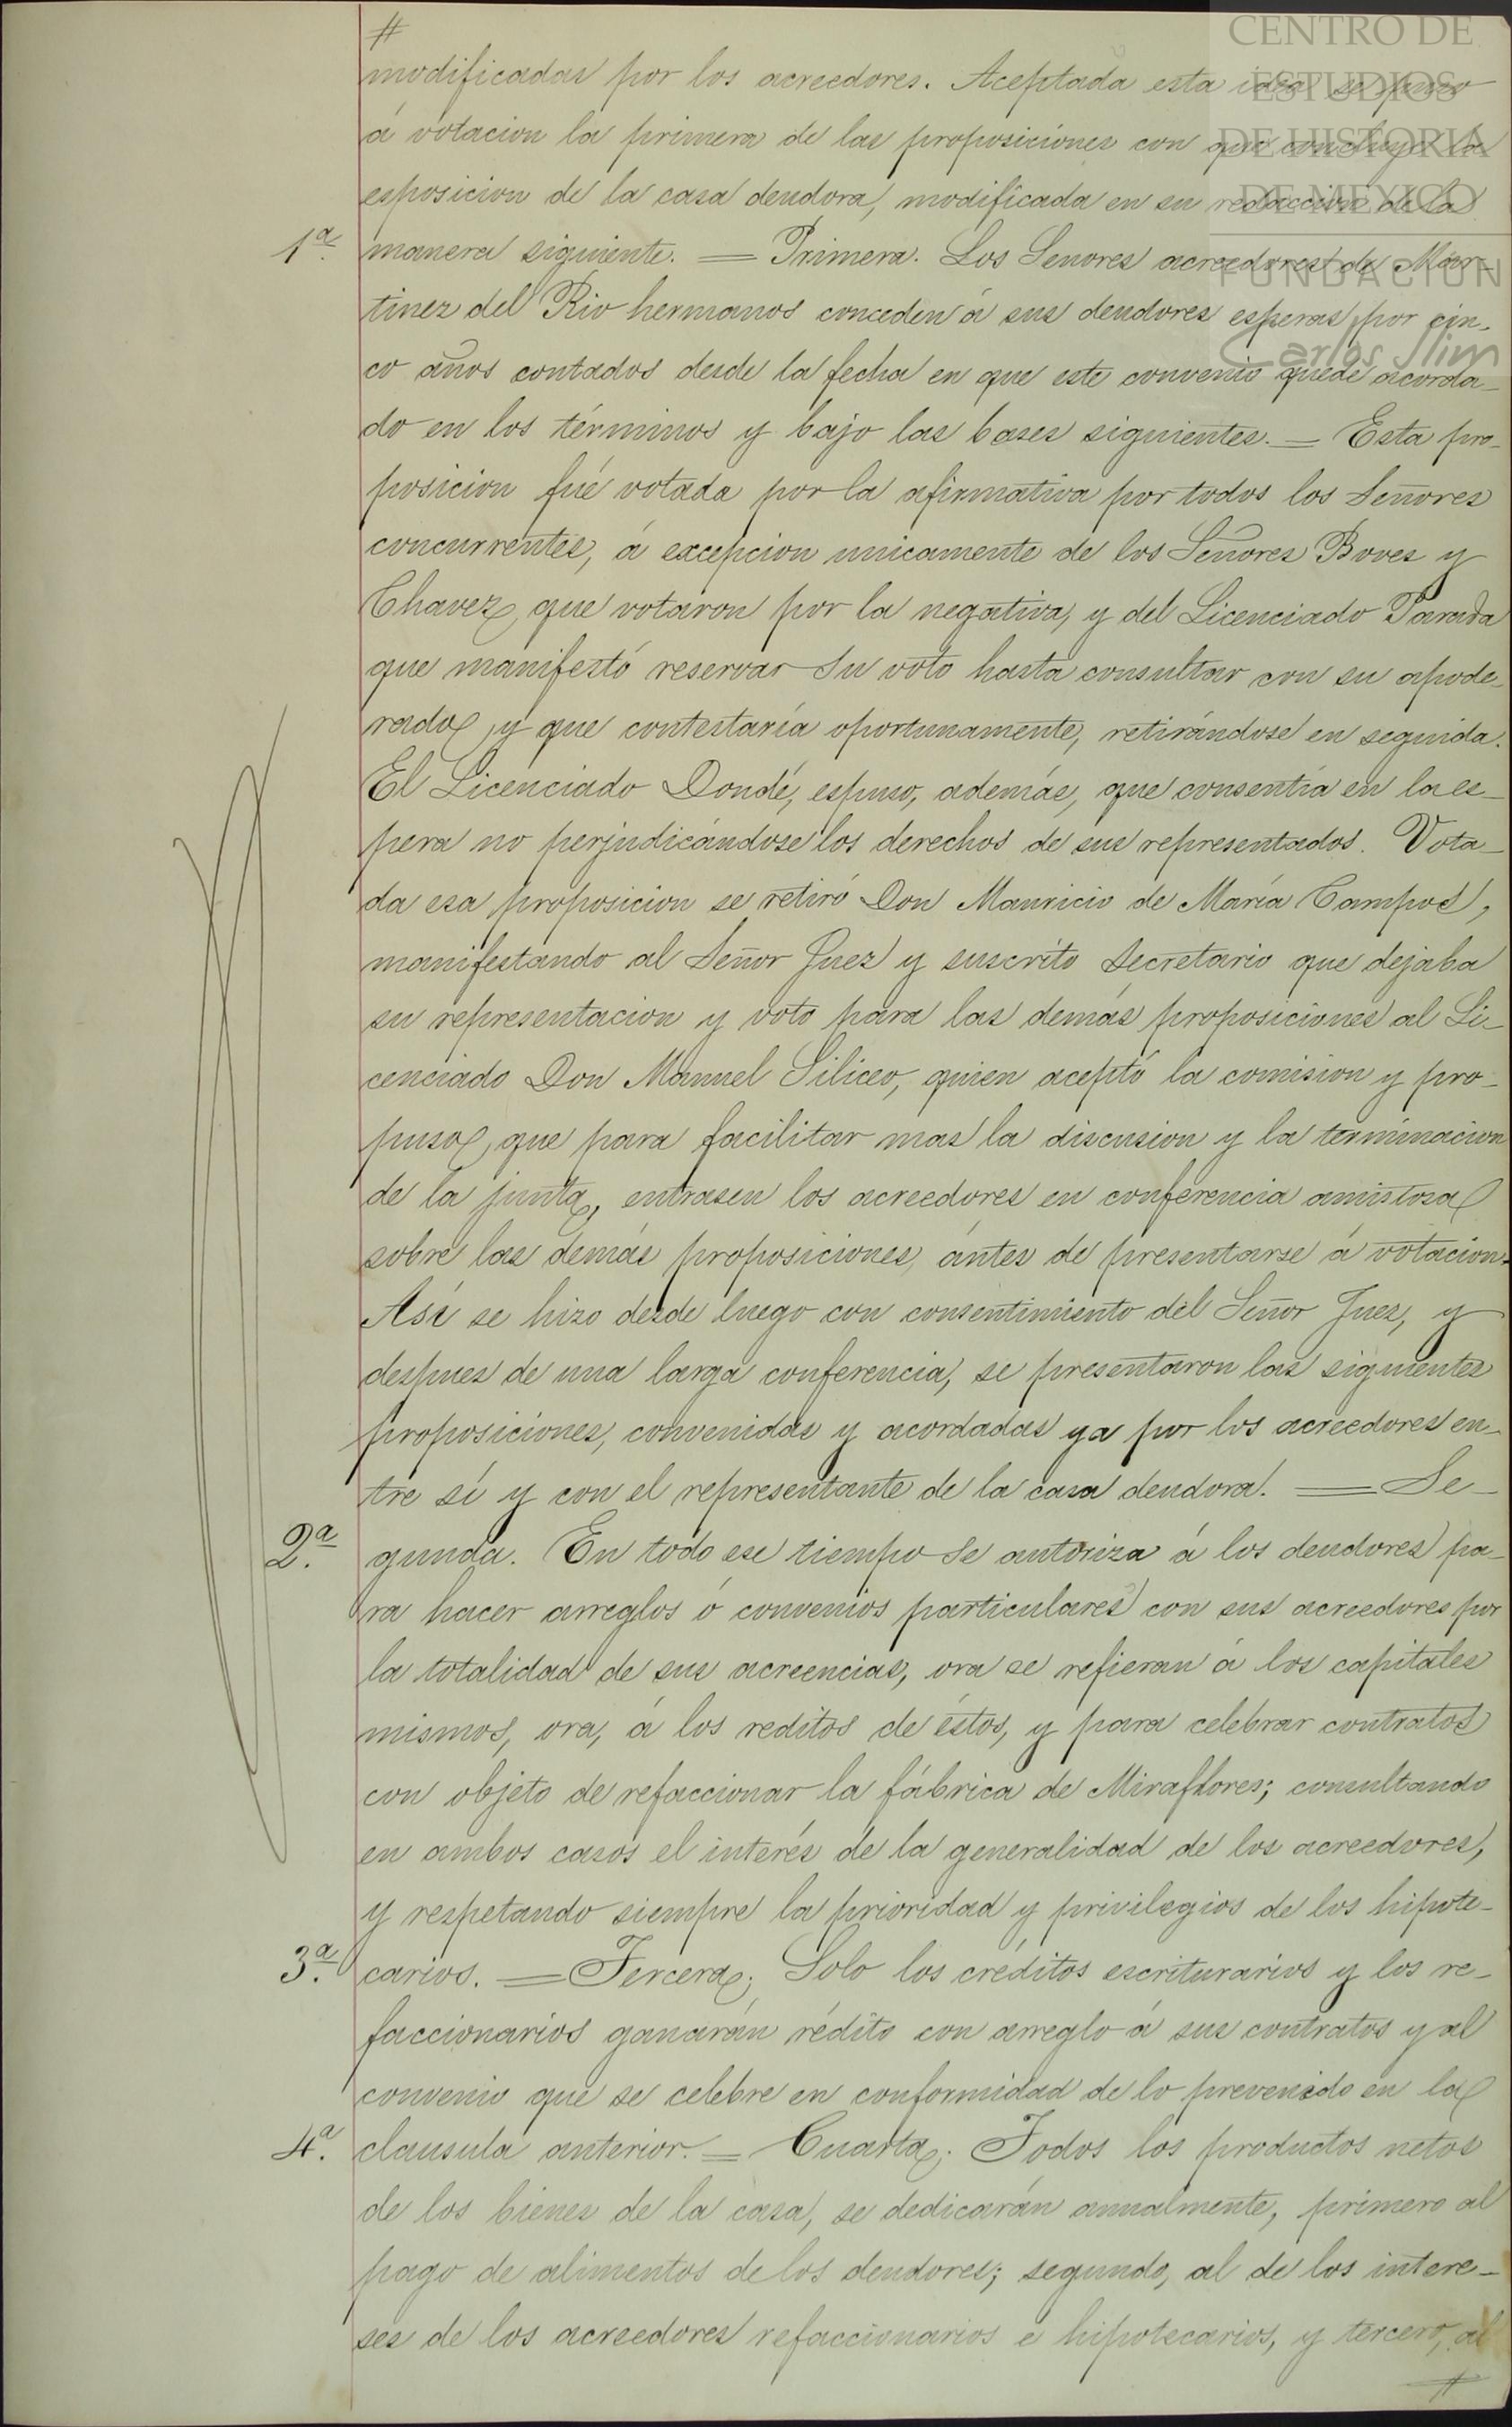 CENTRO DE
ESTUDIOS
DE HISTORIA
DE MEXICO
FUNDACION
Carlos Slim
#
modificadas por los acreedores. Aceptada esta idea se puso
á votacion la primera de las proposiciones con que concluye la
esposicion de la casa deudora, modificada en su redaccion de la
1ª. manera siguiente. = Primera. Los Senores acreedores de Mar-
tinez del Rio hermanos conceden á sus deudores esperas por cin-
co años contados desde la fecha en que este convenio quede acorda-
do en los términos y bajo las bases siguientes. = Esta pro-
posicion fué votada por la afirmativa por todos los Señores
concurrentes, á excepcion unicamente de los Señores Boves y
Chavez, que votaron por la negativa, y del Licenciado Parada
que manifestó reservar su voto hasta consultar con su apode-
rado, y que contestaría oportunamente, retirándose en seguida.
El Licenciado Dondé, espuso, además, que consentía en la es-
pera no perjudicándose los derechos de sus representados. Vota-
da esa proposicion se retiró Don Mauricio de María Campos,
manifestando al Señor Juez y suscrito Secretario que dejaba
su representacion y voto para las demás proposiciones al Li-
cenciado Don Manuel Siliceo, quien aceptó la comision y pro-
puso, que para facilitar mas la discusion y la terminacion
de la junta, entrasen los acreedores en conferencia amistosa
sobre las demás proposiciones, ántes de presentarse á votacion.
Así se hizo desde luego con consentimiento del Señor Juez, y
despues de una larga conferencia, se presentaron las siguientes
proposiciones, convenidas y acordadas ya por los acreedores en-
tre sí y con el representante de la casa deudora. = Se-
2ª. gunda. En todo ese tiempo se autoriza á los deudores pa-
ra hacer arreglos ó convenios particulares con sus acreedores por
la totalidad de sus acreencias, ora se refieran á los capitales
mismos, ora, á los reditos de éstos, y para celebrar contratos
con objeto de refaccionar la fábrica de Miraflores; consultando
en ambos casos el interés de la generalidad de los acreedores,
y respetando siempre la prioridad y privilegios de los hipote-
3ª. carios. = Tercera. Solo los créditos escriturarios y los re-
faccionarios ganarán rédito con arreglo á sus contratos y al
convenio que se celebre en conformidad de lo prevenido en la
4ª. clausula anterior. = Cuarta. Todos los productos netos
de los bienes de la casa, se dedicarán anualmente, primero al
pago de alimentos de los deudores; segundo, al de los intere-
ses de los acreedores refaccionarios é hipotecarios, y tercero, al
#